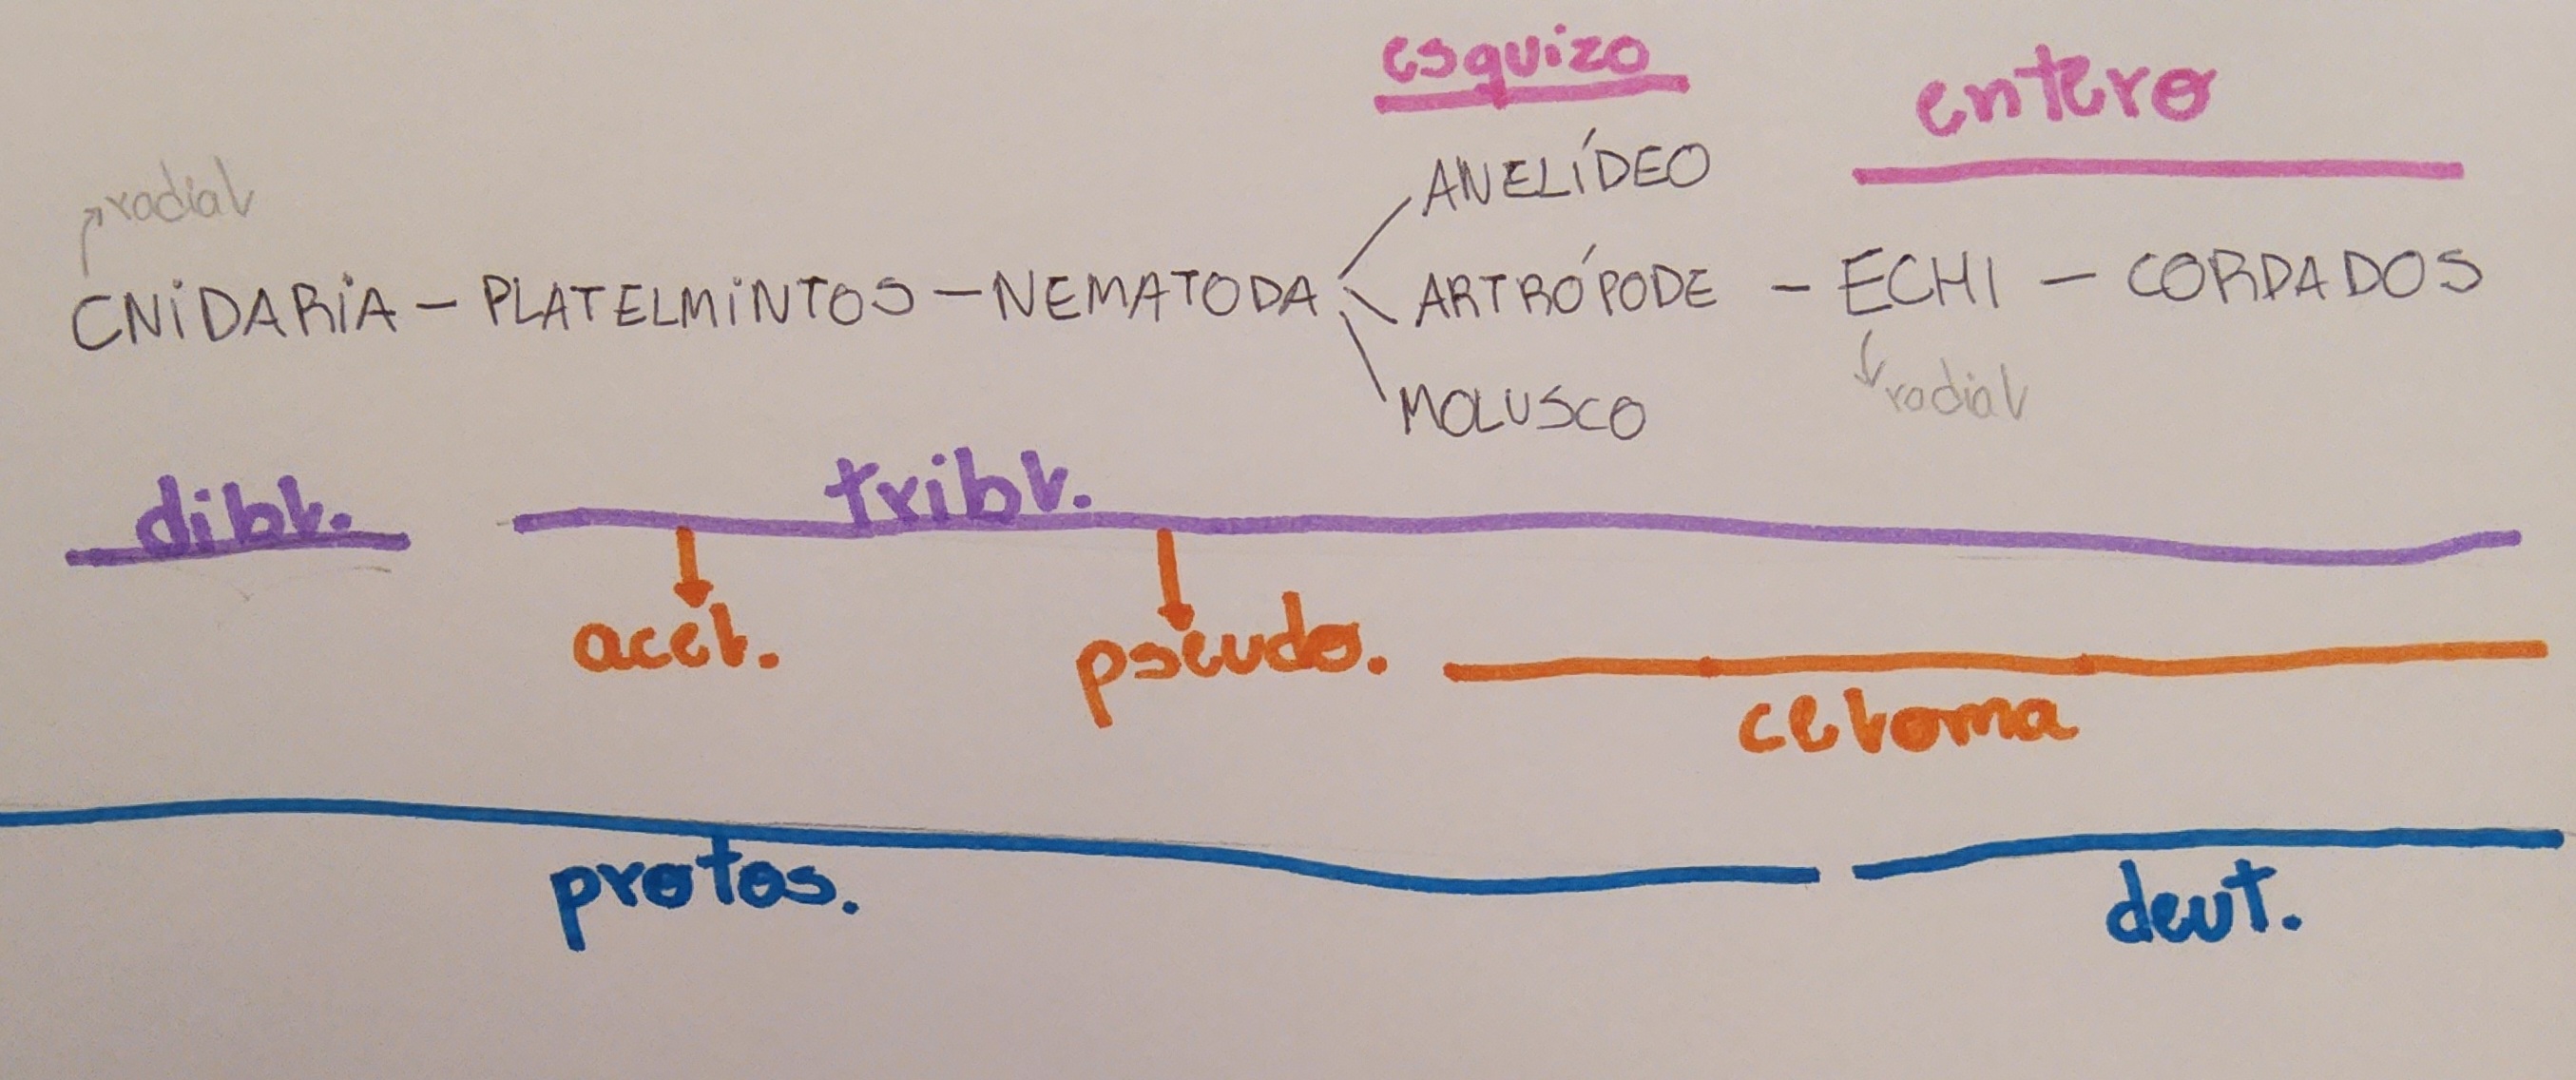 esquizo
entero
radial
ANELÍDEO
CNIDARIA - PLATELMINTOS - NEMATODA ARTRÓPODE - ECHI - CORDADOS
radial
MOLUSCO
dibl. tribl.
acel. pseudo.
celoma
protos. deut.